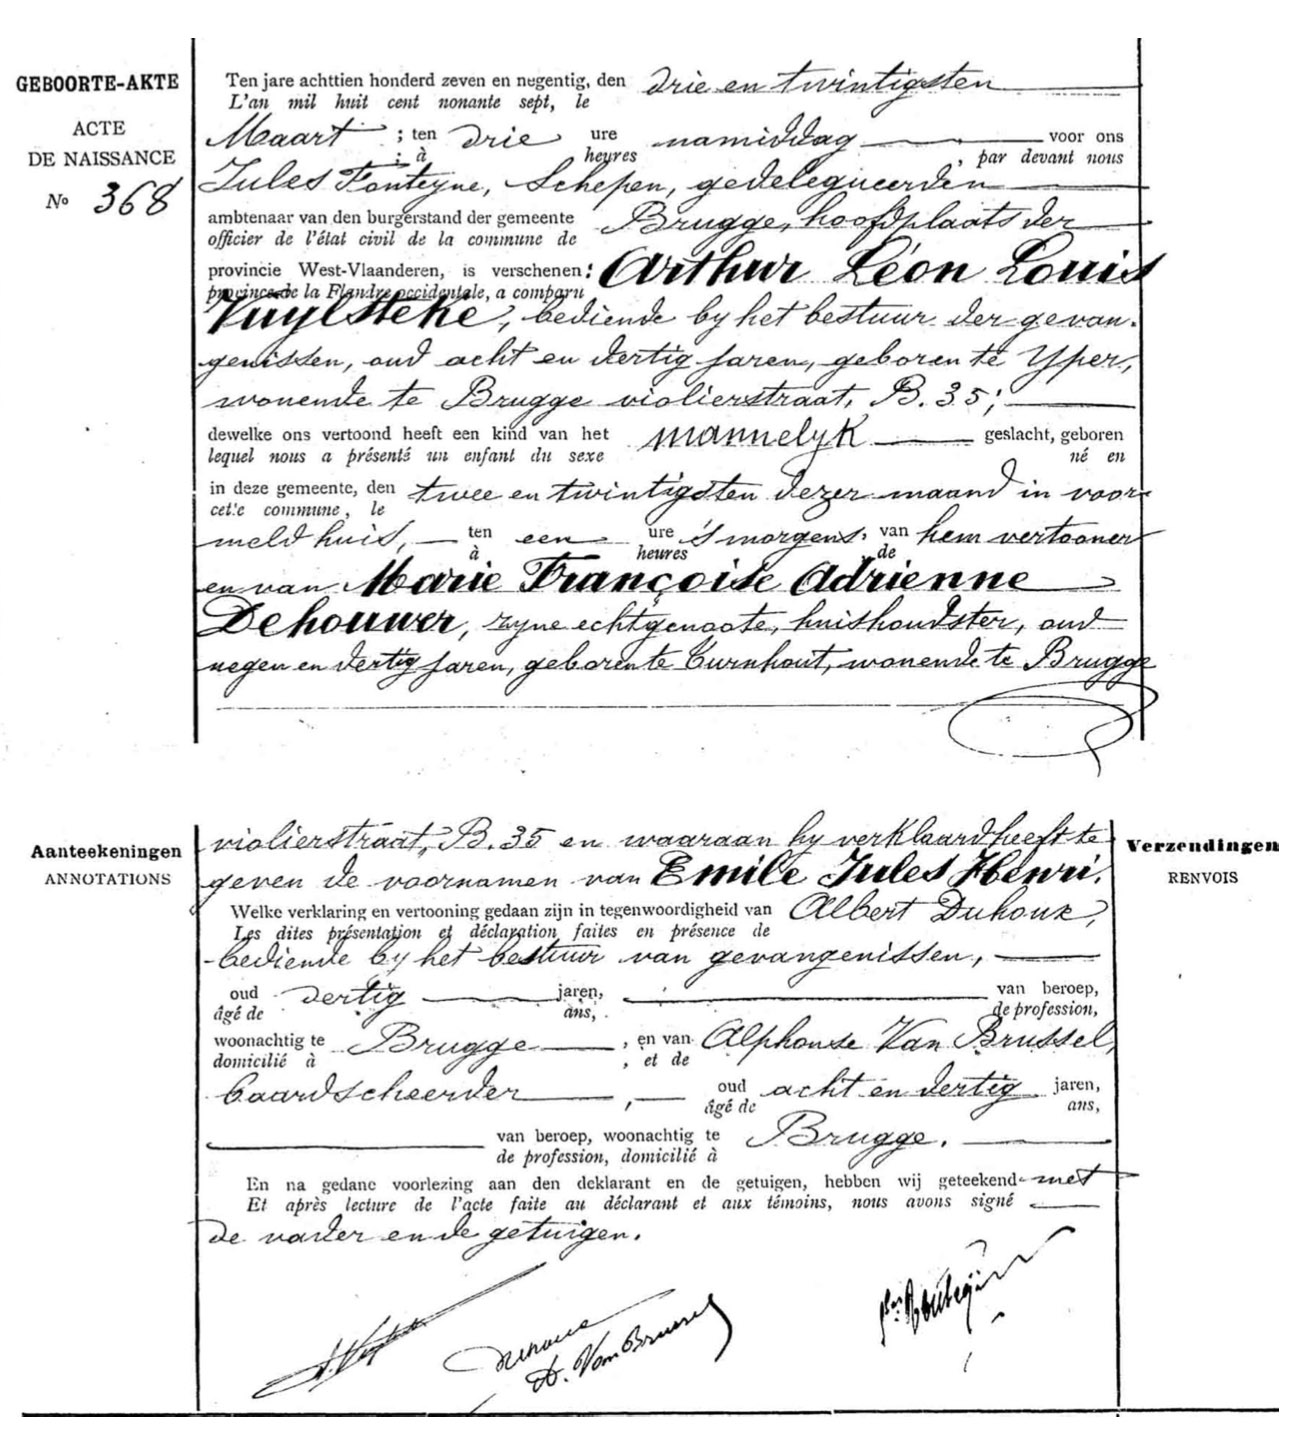 GEBOORTE-AKTE
ACTE
DE NAISSANCE
No 368
Ten jare achttien honderd zeven en negentig, den drie en twintigsten
L'an mil huit cent nonante sept, le
Maart ; ten drie ure namiddag voor ons
; à heures , par devant nous
Jules Fonteyne, Schepen, gedelegueerden
ambtenaar van den burgerstand der gemeente Brugge, hoofdplaats der
officier de l'état civil de la commune de
provincie West-Vlaanderen, is verschenen: Arthur Léon Louis
province de la Flandre occidentale, a comparu
Vuylsteke, bediende by het bestuur der gevan-
genissen, oud acht en dertig jaren, geboren te Yper,
wonende te Brugge violierstraat, B. 35;
dewelke ons vertoond heeft een kind van het mannelyk geslacht, geboren
lequel nous a présenté un enfant du sexe né en
in deze gemeente, den twee en twintigsten dezer maand in voor-
cette commune, le
meld huis, ten een ure 's morgens, van hem vertooner
à heures de
en van Marie Françoise Adrienne
Dehouwer, zyne echtgenoote, huishoudster, oud
negen en dertig jaren, geboren te Turnhout, wonende te Brugge
Aanteekeningen
ANNOTATIONS
Verzendingen
RENVOIS
violierstraat, B. 35 en waaraan hy verklaard heeft te
geven de voornamen van Emile Jules Henri.
Welke verklaring en vertooning gedaan zijn in tegenwoordigheid van Albert Duhoux,
Les dites présentation et déclaration faites en présence de
bediende by het bestuur van gevangenissen,
oud dertig jaren, van beroep,
âgé de ans, de profession,
woonachtig te Brugge , en van Alphonse Van Brussel,
domicilié à , et de
baardscheerder , oud acht en dertig jaren,
âgé de ans,
van beroep, woonachtig te Brugge.
de profession, domicilié à
En na gedane voorlezing aan den deklarant en de getuigen, hebben wij geteekend met
Et après lecture de l'acte faite au déclarant et aux témoins, nous avons signé
de vader en de getuigen.
A. Van Brussel